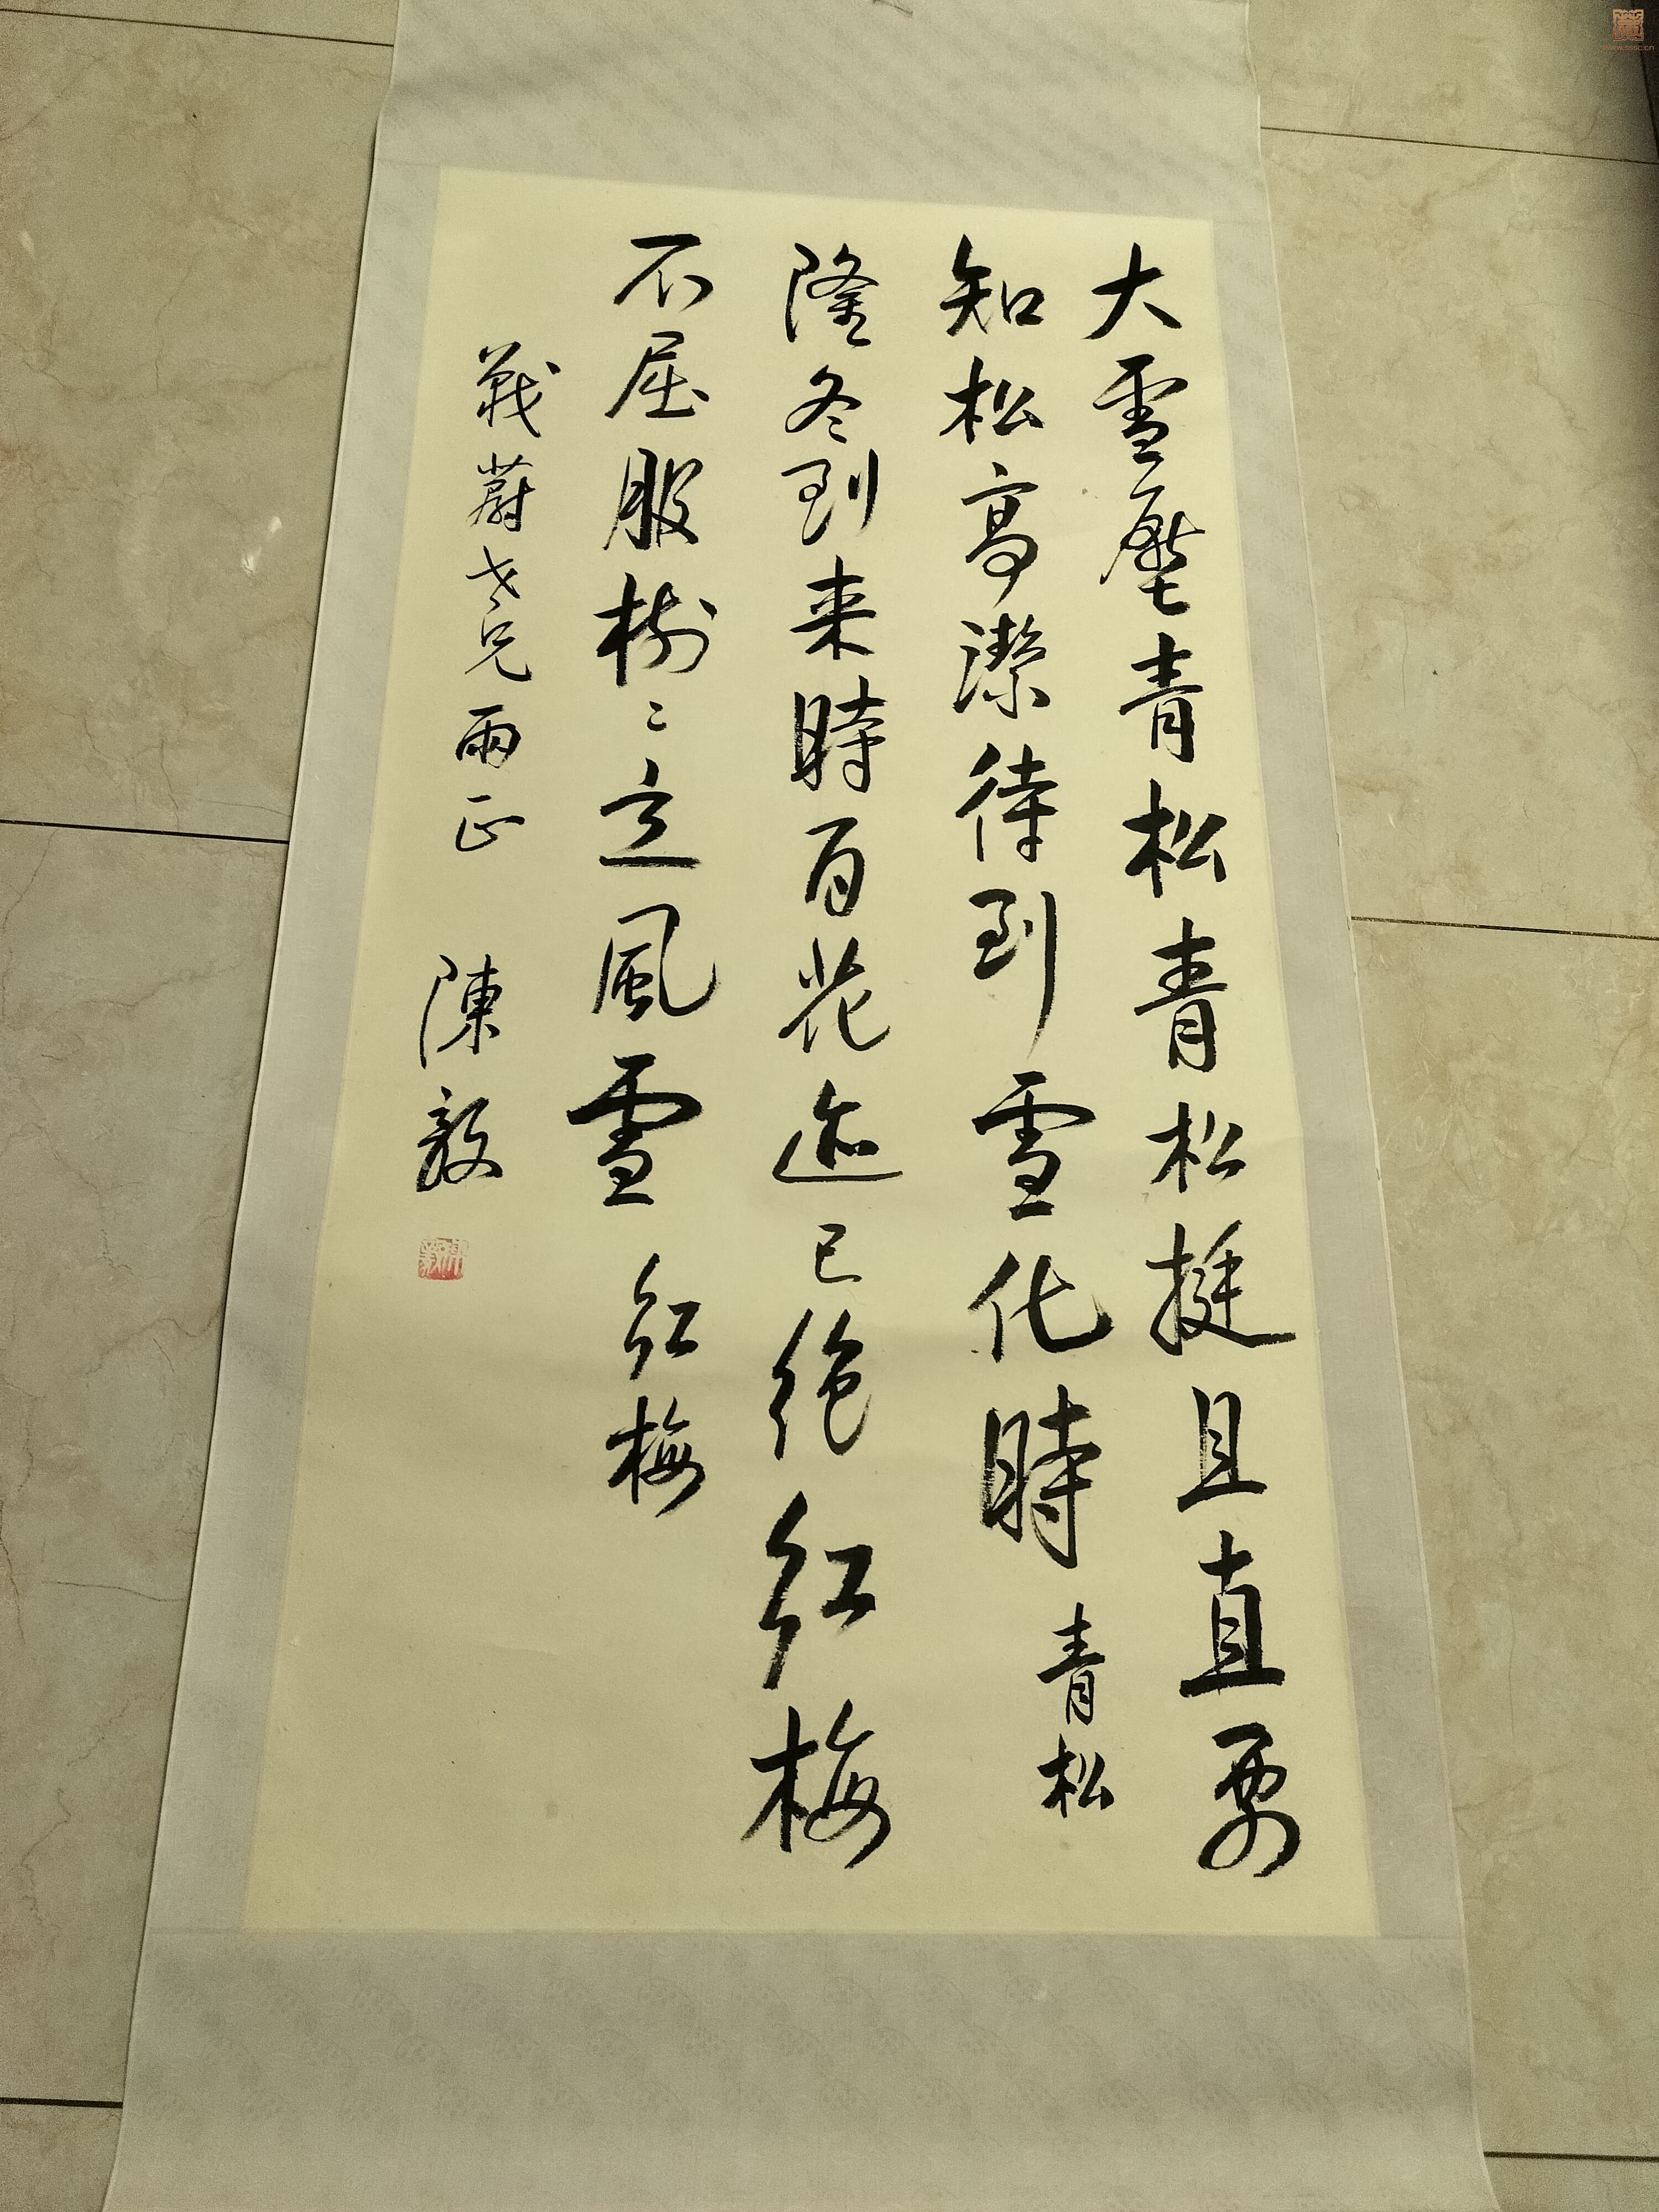 大雪壓青松青松挺且直要
知松高潔待到雪化時 青松
隆冬到来時百花迹已絕紅梅
不屈服樹々立風雪 紅梅
蔚老兄兩正 陳毅
www.sssc.cn